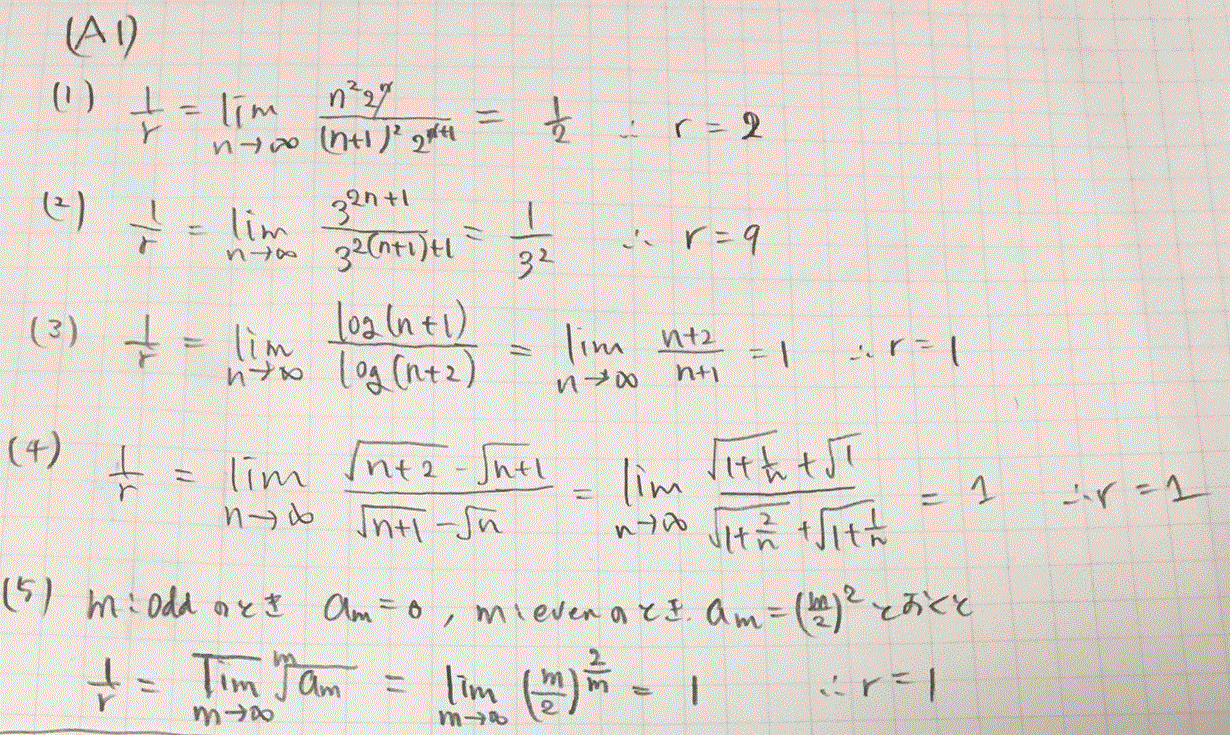 (A1)
(1) 1/r = lim_{n→∞} n²2ⁿ/((n+1)² 2ⁿ⁺¹) = 1/2 ∴ r = 2
(2) 1/r = lim_{n→∞} 3^{2n+1}/3^{2(n+1)+1} = 1/3² ∴ r = 9
(3) 1/r = lim_{n→∞} log(n+1)/log(n+2) = lim_{n→∞} (n+2)/(n+1) = 1 ∴ r = 1
(4) 1/r = lim_{n→∞} (√(n+2) - √(n+1))/(√(n+1) - √n) = lim_{n→∞} (√(1+1/n) + √1)/(√(1+2/n) + √(1+1/n)) = 1 ∴ r = 1
(5) m:odd のとき a_m = 0, m:even のとき a_m = (m/2)² とおくと
1/r = \overline{lim}_{m→∞} ᵐ√a_m = lim_{m→∞} (m/2)^{2/m} = 1 ∴ r = 1